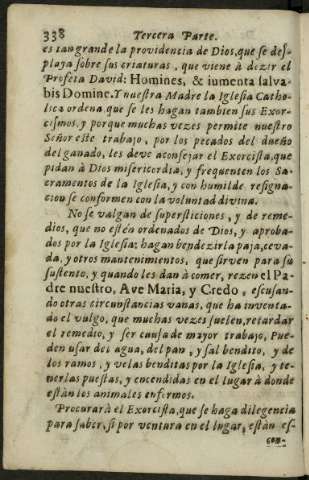 338 Tercera Parte.
es tan grande la providencia de Dios, que se des-
playa sobre sus criaturas, que viene à dezir el
Profeta David: Homines, & iumenta salva-
bis Domine. Y nuestra Madre la Iglesia Catho-
lica ordena, que se les hagan tambien sus Exor-
cismos, y porque muchas vezes permite nuestro
Señor este trabajo, por los pecados del dueño
del ganado, les deve aconsejar el Exorcista, que
pidan à Dios misericordia, y frequenten los Sa-
cramentos de la Iglesia, y con humilde resigna-
cion se conformen con la voluntad divina.
No se valgan de supersticiones, y de reme-
dios, que no estèn ordenados de Dios, y aproba-
dos por la Iglesia: hagan bendezir la paja, ceva-
da, y otros mantenimientos, que sirven para su
sustento, y quando les dan à comer, rezen el Pa-
dre nuestro, Ave Maria, y Credo, escusan-
do otras circunstancias vanas, que ha inventa-
do el vulgo, que muchas vezes suelen, retardar
el remedio, y ser causa de mayor trabajo, Pue-
den usar del agua, del pan, y sal bendito, y de
los ramos, y velas benditas por la Iglesia, y te-
nerlas puestas, y encendidas en el lugar à donde
estàn los animales enfermos.
Procurarà el Exorcista, que se haga diligencia
para saber, si por ventura en el lugar, estàn es-
con-